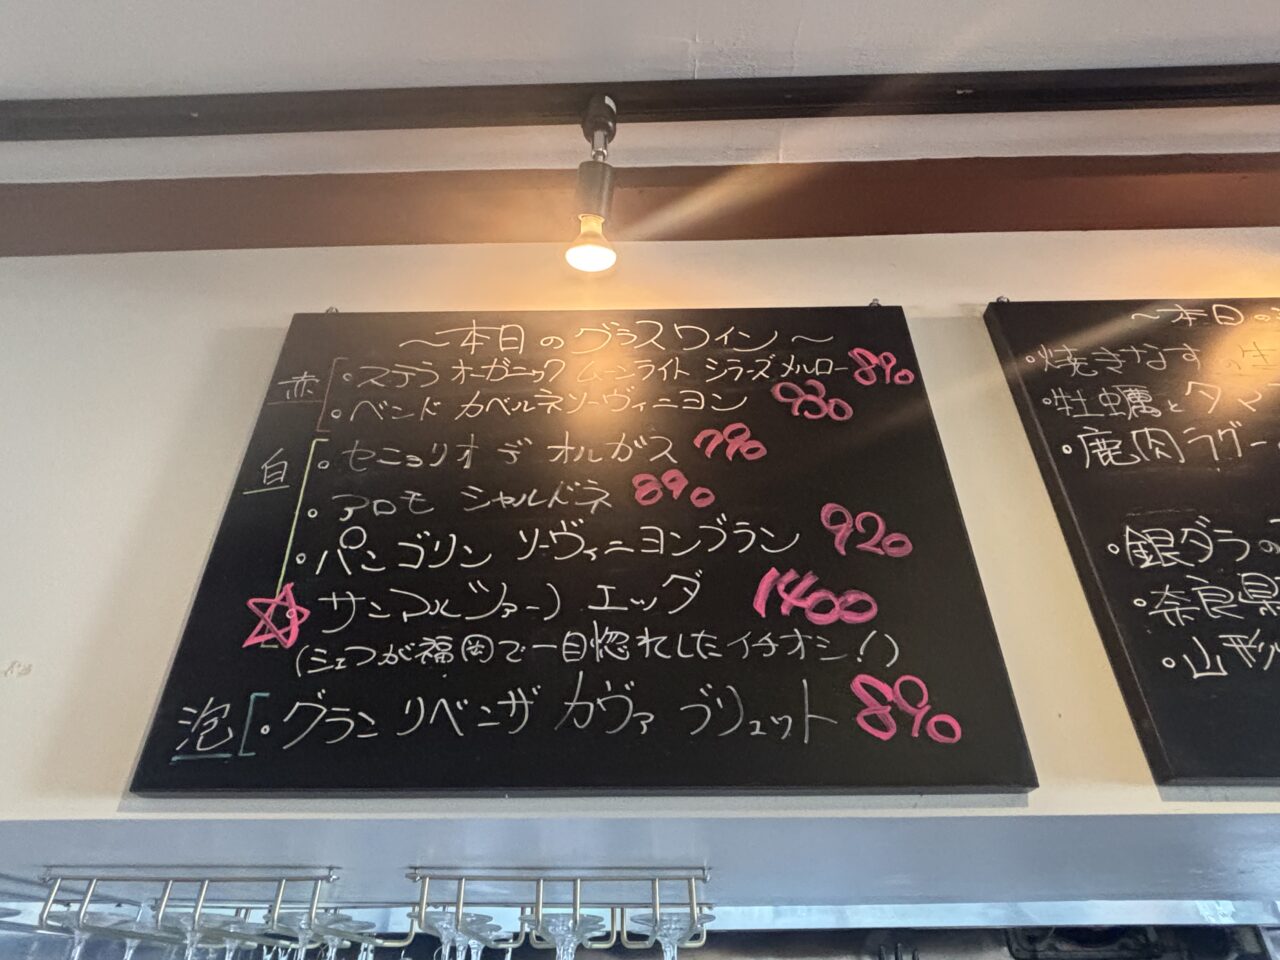 ～本日のグラスワイン～
赤
・ステラ オーガニック ムーンライト シラーズ メルロー 890
・ベンド カベルネソーヴィニヨン 930
白
・セニョリオ デ オルガス 790
・アロモ シャルドネ 890
・パンゴリン ソーヴィニヨンブラン 920
サンマルツァーノ エッダ 1400
(シェフが福岡で一目惚れしたイチオシ!)
泡
・グラン リベンサ カヴァ ブリュット 890
～本日の
・焼きなすの
・牡蠣とタマ
・鹿肉ラグー
・銀ダラの
・奈良県
・山形